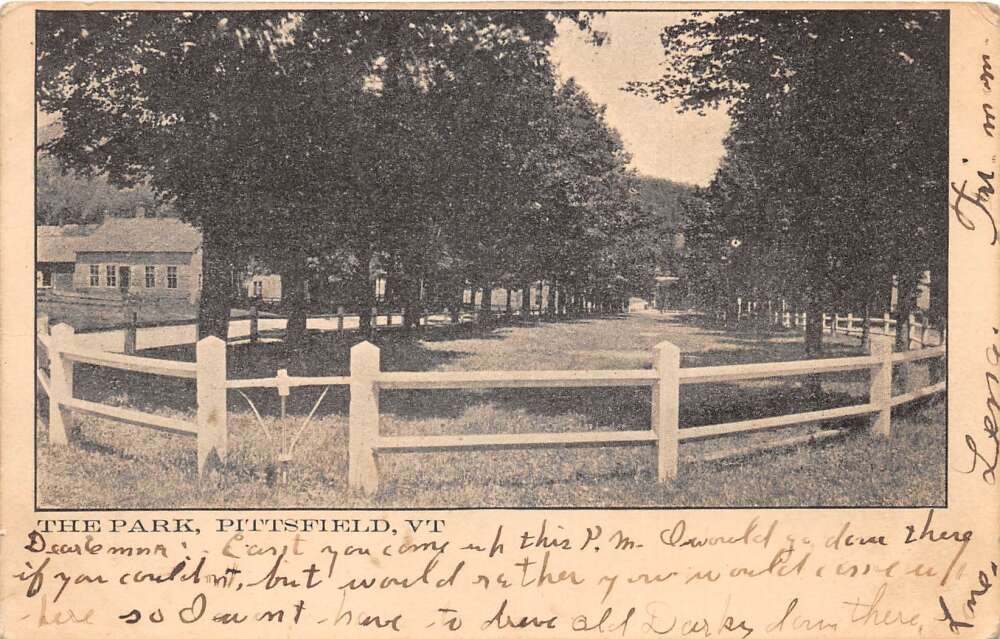 THE PARK, PITTSFIELD, VT
Dear Emma: Can't you come up this P. M. I would go down there
if you couldn't, but would rather you would come up
here so I wont have to drive old Darky down there,